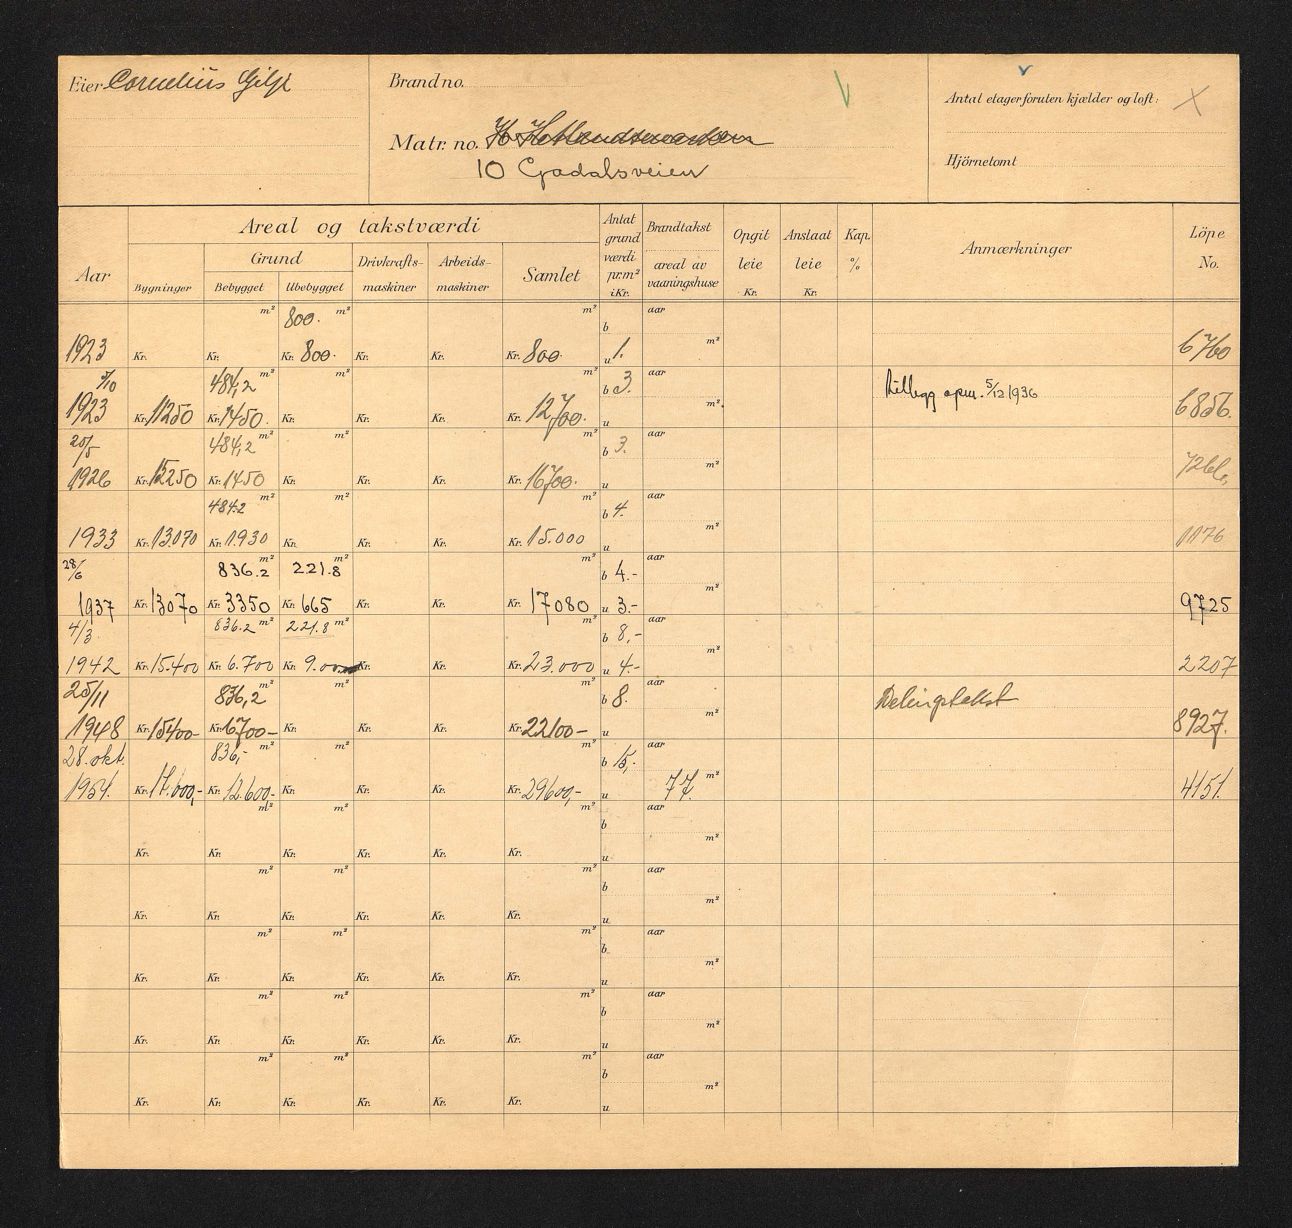 Eier Cornelius Gilje
Brand no.
Matr. no.
10 Gjadalsveien
Antal etager foruten kjælder og loft: X
Hjörnetomt
Aar
Areal og takstværdi
Grund
Bygninger Bebygget Ubebygget
Drivkrafts-maskiner
Arbeids-maskiner
Samlet
Antal grund værdi pr. m² i Kr.
Brandtakst
areal av vaaningshuse
Opgit leie Kr.
Anslaat leie Kr.
Kap. %
Anmærkninger
Löpe No.
m² 800. m² m² b aar
1923 Kr. Kr. Kr. 800. Kr. Kr. Kr. 800. u 1. m² 6760
484,2 m² m² m² b 3. aar
1923 Kr. 11250 Kr. 1450. Kr. Kr. Kr. Kr. 12700. u m² Tillegg opm. 5/12 1936 6856.
20/5 484,2 m² m² m² b 3. aar
1926 Kr. 15250 Kr. 1450 Kr. Kr. Kr. Kr. 16700. u m² 7266.
484.2 m² m² m² b 4. aar
1933 Kr. 13070 Kr. 1.930 Kr. Kr. Kr. Kr. 15.000 u m² 1176
28/6 836.2 m² 221.8 m² m² b 4.- aar
1937 Kr. 13070 Kr. 3350 Kr. 665 Kr. Kr. Kr. 17080 u 3.- m² 9725
4/3. 836.2 m² 221.8 m² m² b 8,- aar
1942 Kr. 15.400 Kr. 6.700 Kr. Kr. Kr. Kr. 23.000 u 4.- m² 2207
25/11 836,2 m² m² m² b 8. aar Delingstakst
1948 Kr. 15400- Kr. 6700- Kr. Kr. Kr. Kr. 22100- u m² 8927.
28. okt. 836,- m² m² m² b 15,- aar
1954. Kr. 17.000,- Kr. 12.600- Kr. Kr. Kr. Kr. 29600,- u 77. m² 4151.
m² m² m² b aar
Kr. Kr. Kr. Kr. Kr. Kr. u m²
m² m² m² b aar
Kr. Kr. Kr. Kr. Kr. Kr. u m²
m² m² m² b aar
Kr. Kr. Kr. Kr. Kr. Kr. u m²
m² m² m² b aar
Kr. Kr. Kr. Kr. Kr. Kr. u m²
m² m² m² b aar
Kr. Kr. Kr. Kr. Kr. Kr. u m²